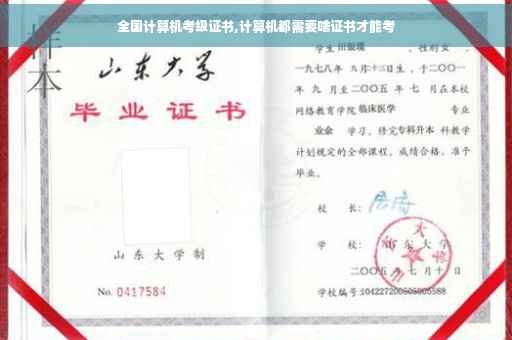 全国计算机考级证书,计算机都需要啥证书才能考
样本
山东大学
毕业证书
山东大学制
No. 0417584
学生 田银瑞 ,性别女 ,
一九七八年 九月十三日生,于二〇〇一
年 九 月至二〇〇五 年 七 月在本校
网络教育学院 临床医学 专业
业余 学习,修完专科升本 科教学
计划规定的全部课程,成绩合格,准予
毕业。
校 长:
学 校: 山东大学
二〇〇五 年 七 月 十 日
学校编号:104227200505005588